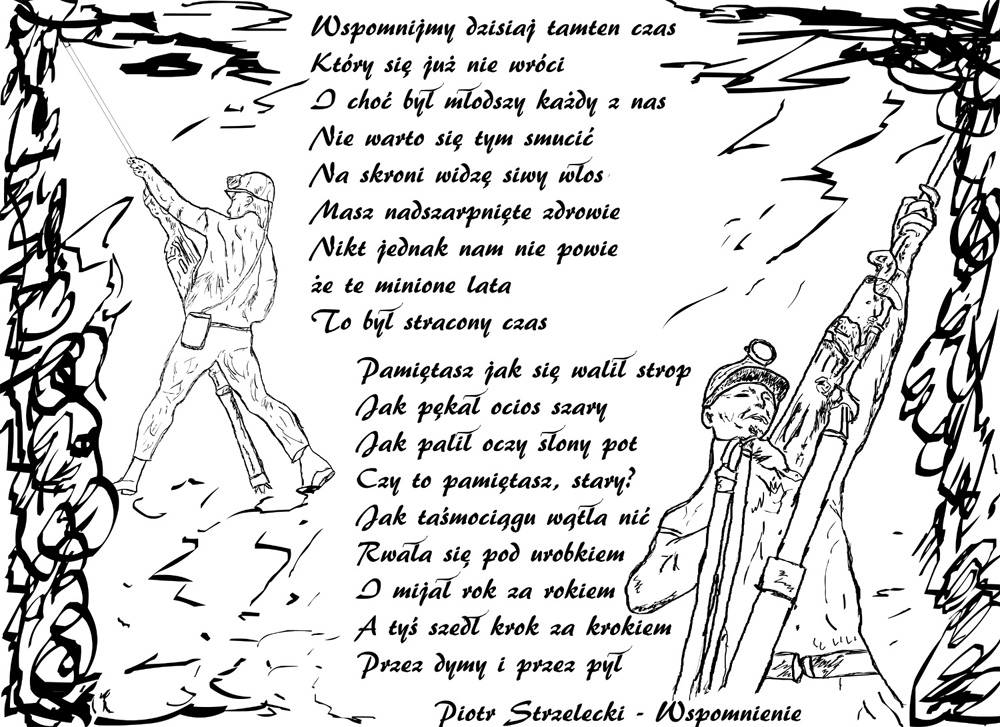 Wspomnijmy dzisiaj tamten czas
Który się już nie wróci
I choć był młodszy każdy z nas
Nie warto się tym smucić
Na skroni widzę siwy włos
Masz nadszarpnięte zdrowie
Nikt jednak nam nie powie
że te minione lata
To był stracony czas
Pamiętasz jak się walił strop
Jak pękał ocios szary
Jak palił oczy słony pot
Czy to pamiętasz, stary?
Jak taśmociągu wątła nić
Rwała się pod urobkiem
I mijał rok za rokiem
A tyś szedł krok za krokiem
Przez dymy i przez pył
Piotr Strzelecki - Wspomnienie